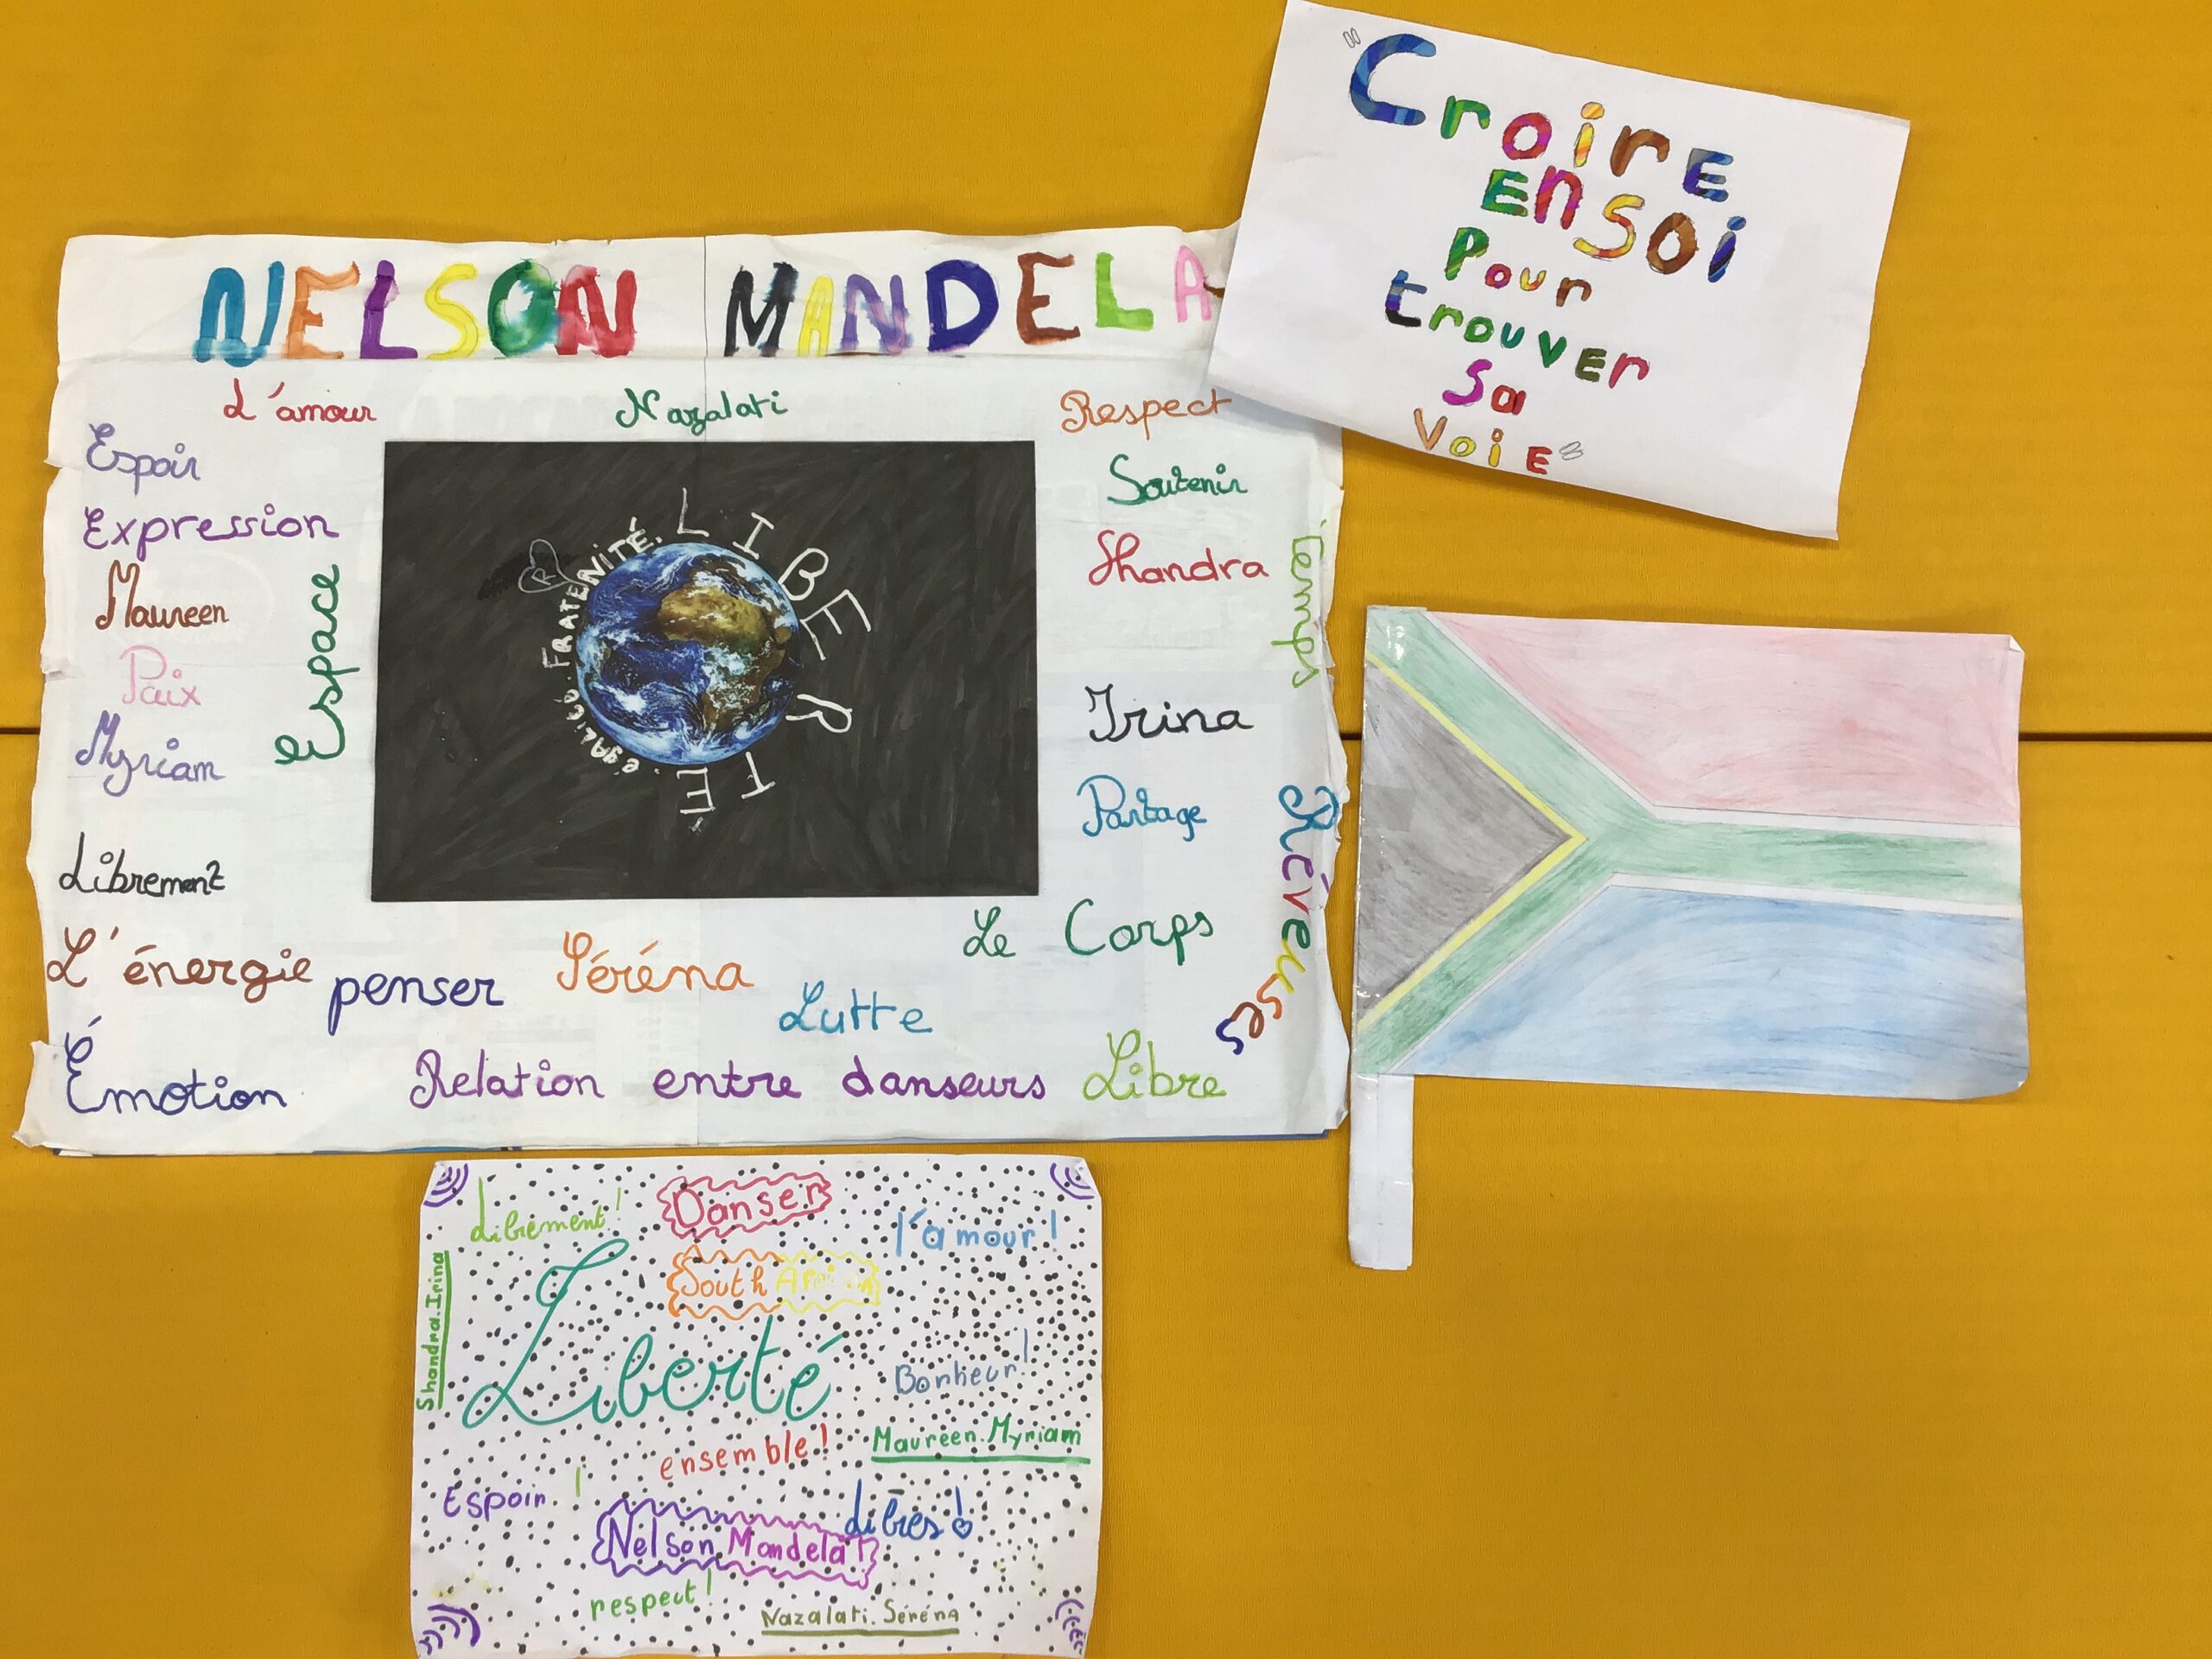 "Croire
En soi
Pour
trouver
Sa
Voie"
NELSON MANDELA
L'amour
Nazalati
Respect
Espoir
Expression
Maureen
Espace
Paix
Myriam
Librement
Soutenir
Shandra
Temps
Irina
Partage
Rêveuses
LIBERTÉ
égalité. FRATENITÉ.
R
Le Corps
L'énergie
penser
Séréna
Lutte
Émotion
Relation entre danseurs
Libre
Librement!
Danser
l'amour!
South
Shandra.Irina
Liberté
Bonheur!
ensemble!
Maureen.Myriam
Espoir. !
Libres!
Nelson Mandela!
respect!
Nazalati. Séréna